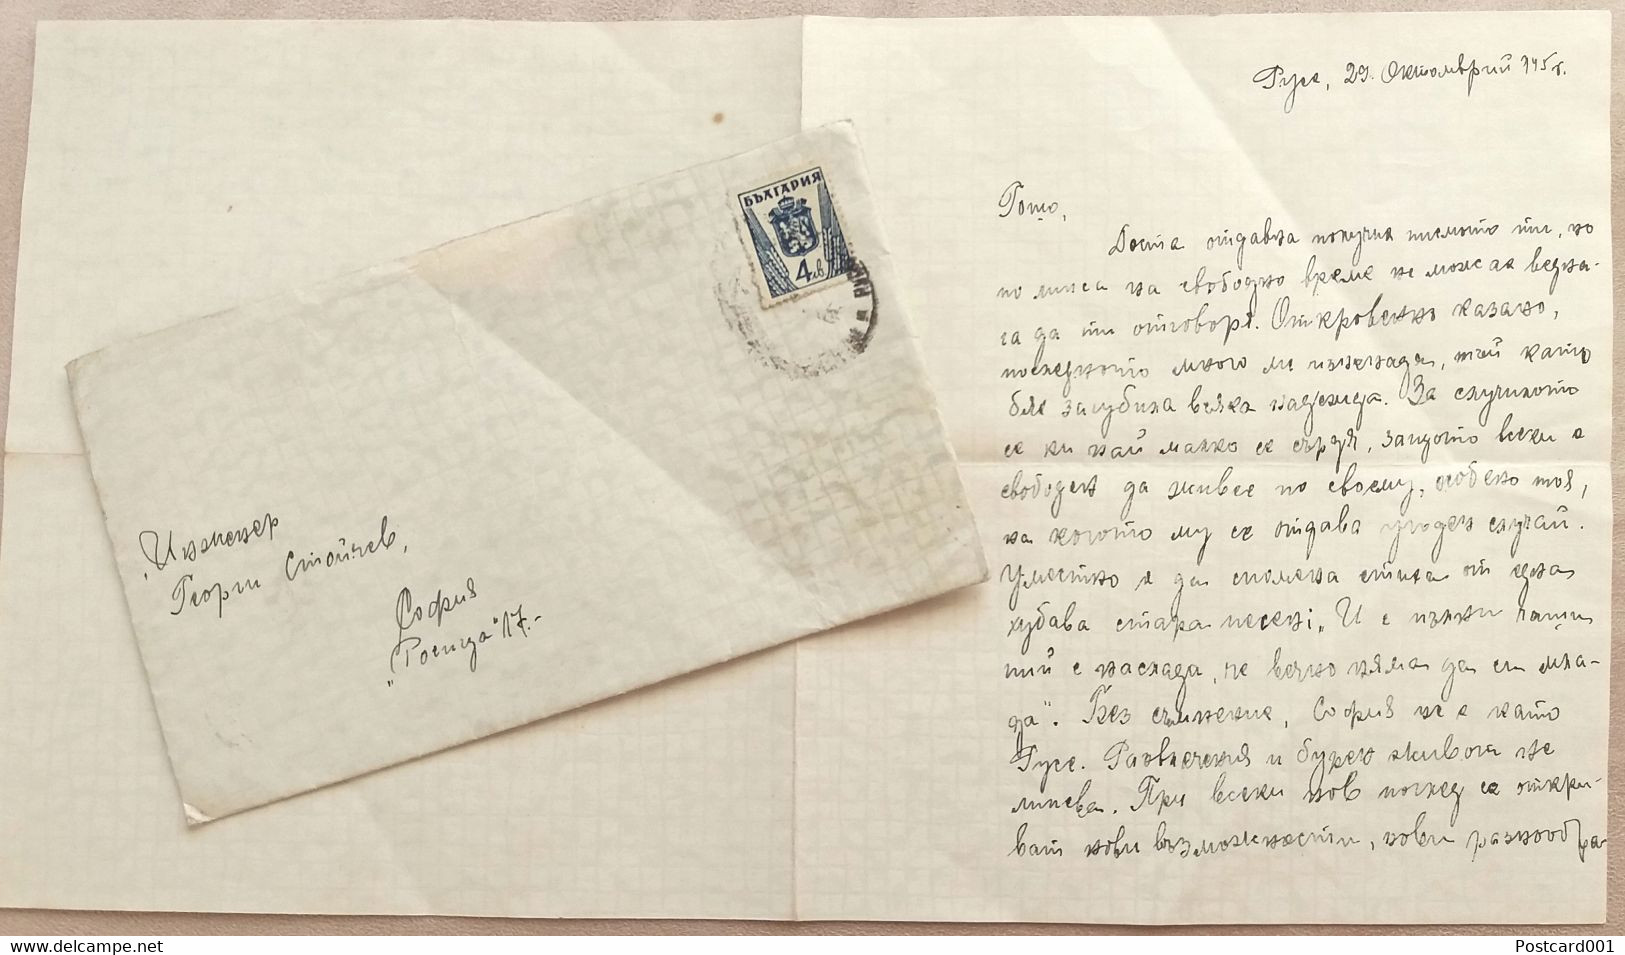 Русе, 29. Октомврий 945 г.
Гошо,
Доста отдавна получих писмото ти, но
по липса на свободно време не можах ведна-
га да ти отговоря. Откровенно казано,
последното много ме изненада, тъй като
бях загубила всяка надежда. За случилото
се ни най малко се сърдя, защото всеки е
свободен да живее по своему, особено тоя,
на когото му се отдава угоден случай.
Уместно е да спомена стиха от една
хубава стара песень: „И с изпи чаши
пий с наслада, че вечно няма да си мла-
да". Без съмнение, София не е като
Русе. Развлечения и бурен живот не
липсва. При всеки нов поглед се откри-
ват нови възможности, нови разнообра-
БЪЛГАРИЯ
4 лв
Инженер
Георги Стойчев,
София
„Росица" 17.-
www.delcampe.net
Postcard001